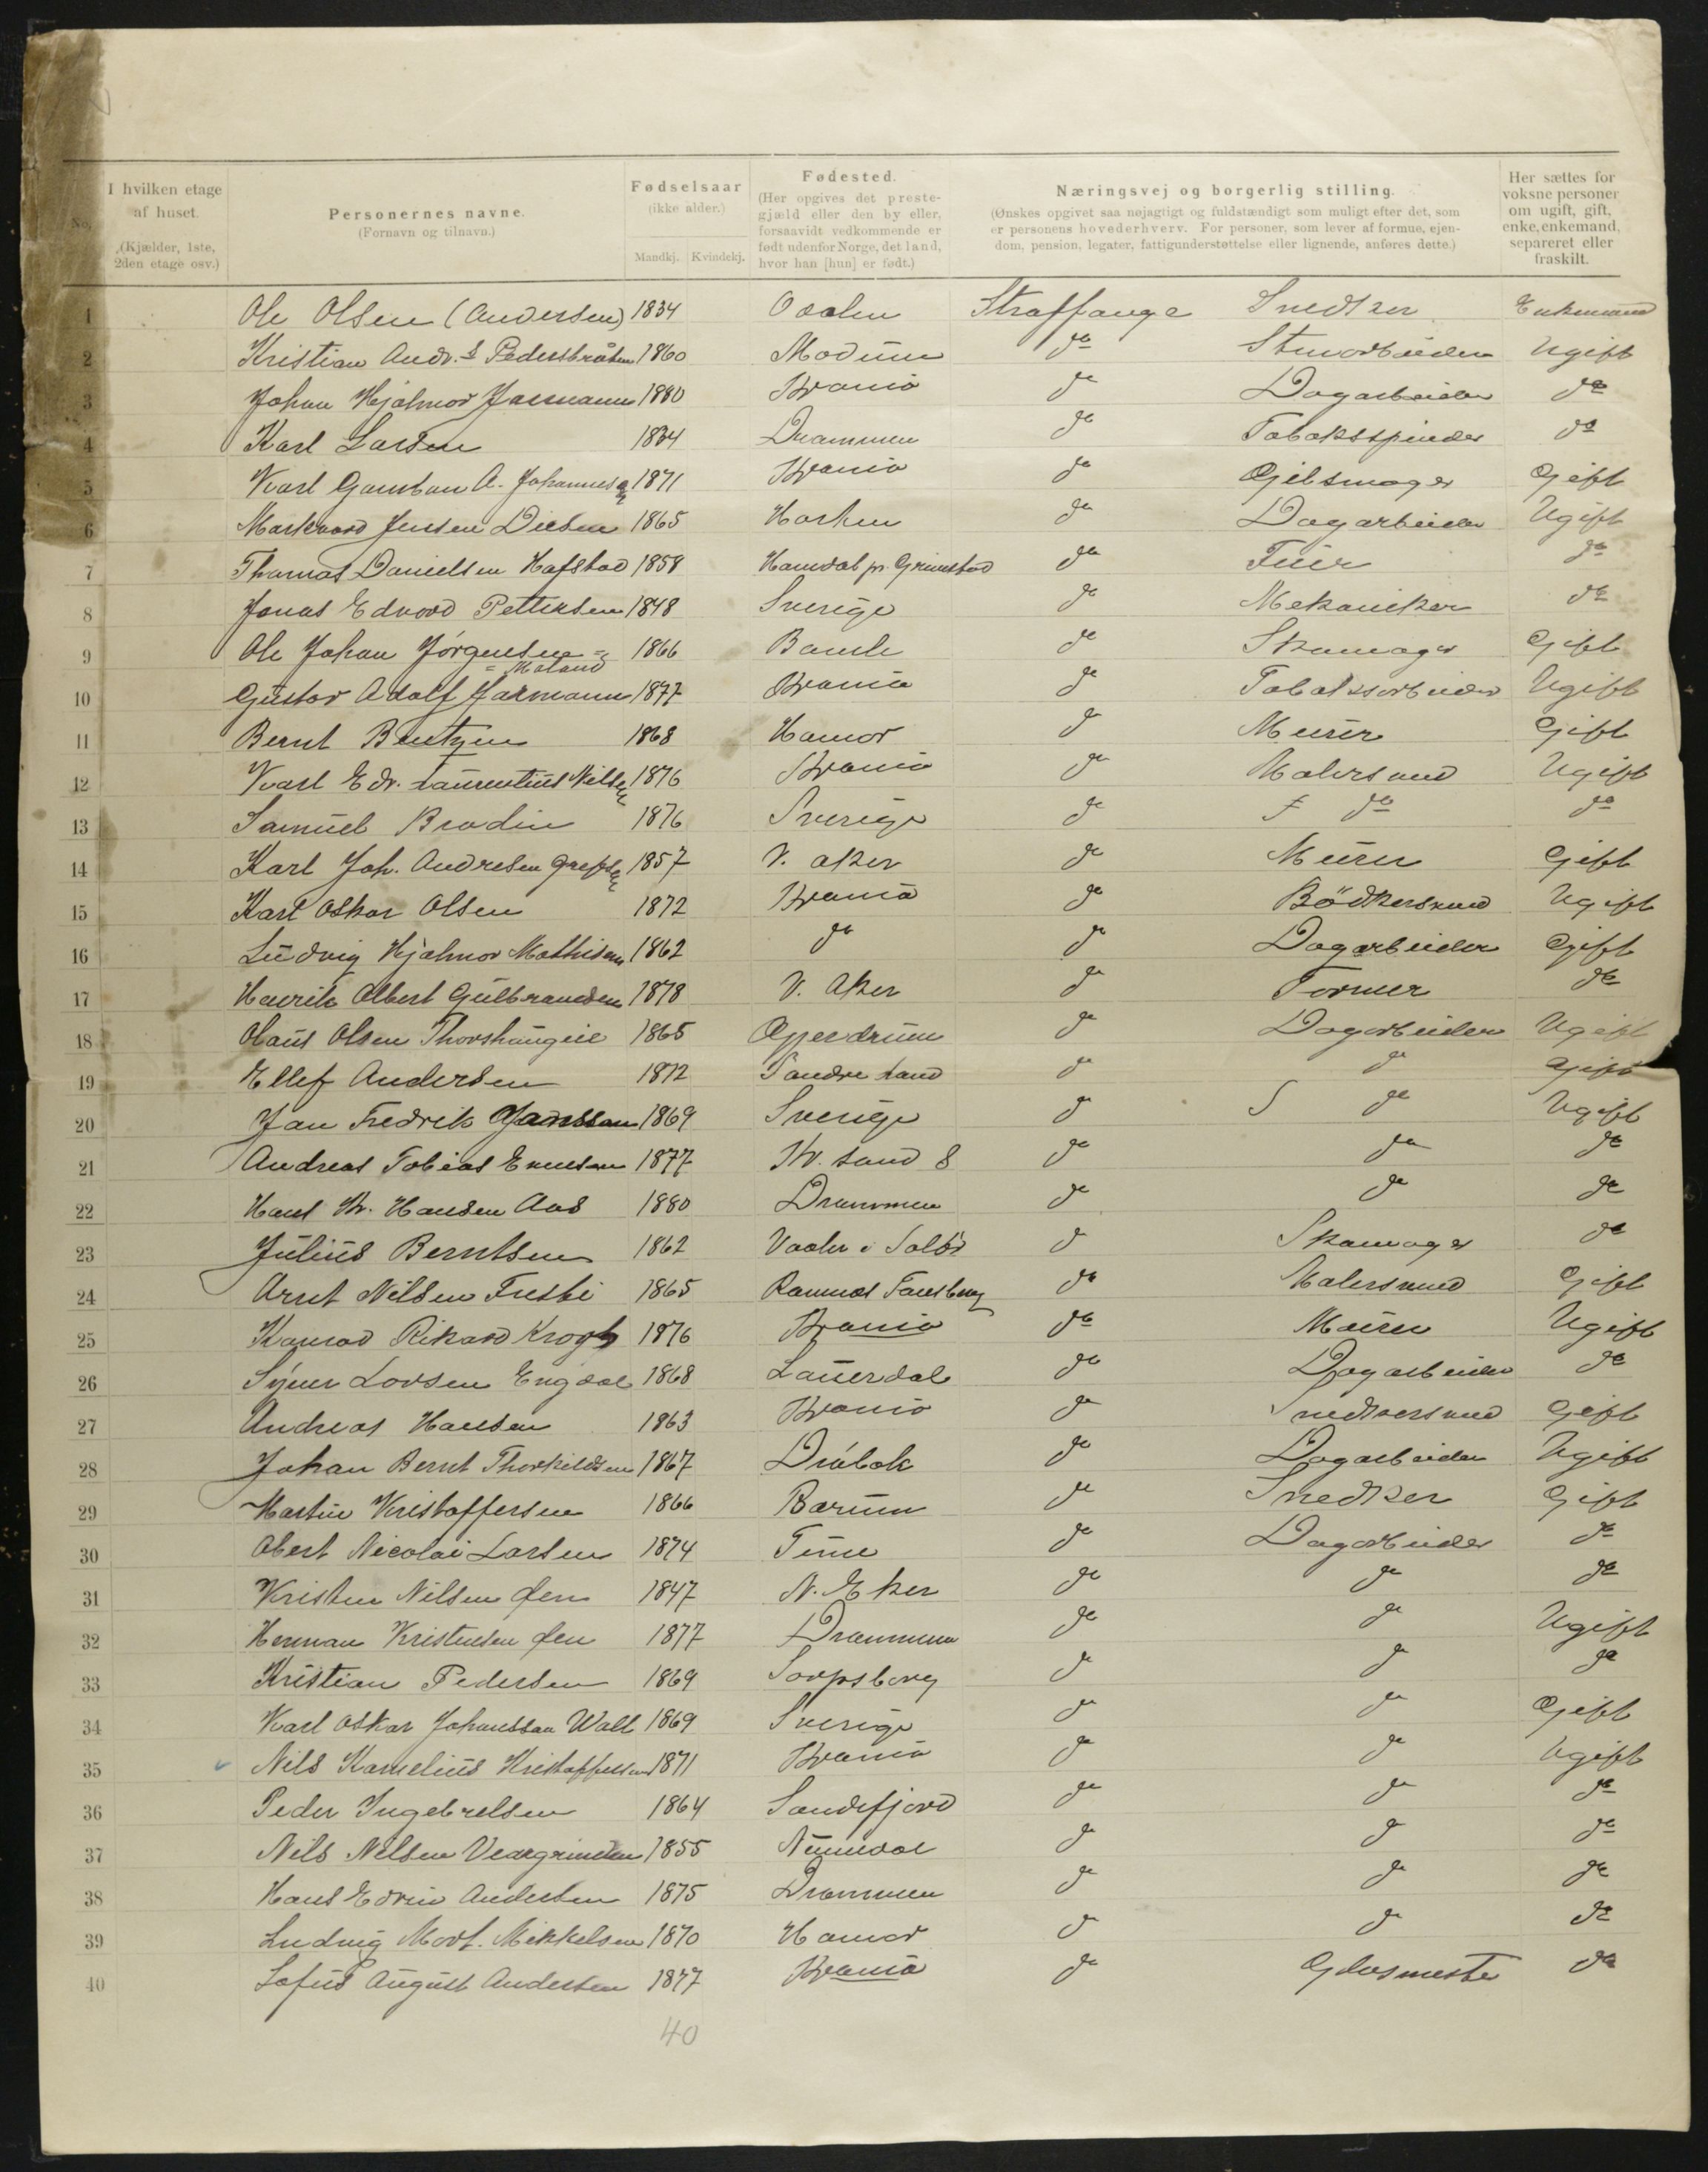 No.
I hvilken etage af huset. (Kjælder, 1ste, 2den etage osv.)
Personernes navne. (Fornavn og tilnavn.)
Fødselsaar (ikke alder.) Mandkj. Kvindekj.
Fødested. (Her opgives det prestegjæld eller den by eller, forsaavidt vedkommende er født udenfor Norge, det land, hvor han [hun] er født.)
Næringsvej og borgerlig stilling. (Ønskes opgivet saa nøjagtigt og fuldstændigt som muligt efter det, som er personens hovederhverv. For personer, som lever af formue, ejendom, pension, legater, fattigunderstøttelse eller lignende, anføres dette.)
Her sættes for voksne personer om ugift, gift, enke, enkemand, separeret eller fraskilt.
1 Ole Olsen (Andersen) 1834 Straffange Snedker Enkemand
2 Kristian Andr. S Pedersbråten 1860 Modum do Ugift
3 Johan Hjalmar 1880 Krania do Dagarbeider do
4 Karl Larsen 1834 Drammen do Tobaksspinder do
5 Karl A. Johannes 1871 Krania do Gjift
6 Jensen 1865 do Dagarbeider Ugift
7 Thomas Danielsen Hafstad 1858 pr. Grimstad do do
8 Jonas Edvard Pettersen 1848 Sverige do Mekaniker do
9 Ole Johan Jörgensen = 1866 Bamle do Skomager Gift
= Moland
10 Gustav Adolf Jakmann 1877 Krania do Tobaksarbeider Ugift
11 Bernt Bentzen 1868 Hamar do Murer Gift
12 Karl Edv. Laurentius Nils 1876 Krania do Malersvend Ugift
13 Samuel Brodin 1876 Sverige do do do
14 Karl Joh. Andresen 1857 V. Aker do Murer Gift
15 Karl Oskar Olsen 1872 Krania do Bödkersvend Ugift
16 Ludvig Hjalmar Mathisen 1862 do do Dagarbeider Gift
17 Henrik Albert Gulbrandsen 1878 V. Aker do Former do
18 Olaus Olsen Thorshaugeie 1865 do Dagarbeider Ugift
19 Ellef Andersen 1872 Söndre Land do do Gift
20 Jan Fredrik Jansson 1869 Sverige do S do Ugift
21 Andreas Tobias 1877 Kr. sand S do do do
22 Hans Kr. Hansen Aas 1880 Drammen do do do
23 Julius Berntsen 1862 Vaaler i Solör do Skomager do
24 Arnt Nilsen 1865 Ramnes do Malersvend Gift
25 Konrad Rikard Krogh 1876 Krania do Murer Ugift
26 Larsen Engdal 1868 do Dagarbeider do
27 Andreas Hansen 1863 Krania do Snedkersvend Gift
28 Johan Bernt Thorkildsen 1867 Dröbak do Dagarbeider Ugift
29 Martin Kristoffersen 1866 Bærum do Snedker Gift
30 Albert Nicolai Larsen 1874 do Dagarbeider do
31 Kristen Nilsen 1847 N. Eker do do do
32 Herman Kristensen 1877 Drammen do do Ugift
33 Kristian Pedersen 1869 Sarpsborg do do do
34 Karl Oskar Johansson Wall 1869 Sverige do do Gift
35 Nils Kornelius Kristoffersen 1871 Krania do do Ugift
36 Peder Ingebretsen 1864 Sandefjord do do do
37 Nils Nilsen 1855 Numedal do do do
38 Hans Edvin Andersen 1875 Drammen do do do
39 Ludvig Mart. Mikkelsen 1870 Hamar do do do
40 Sofus August Andersen 1877 Krania do do
40